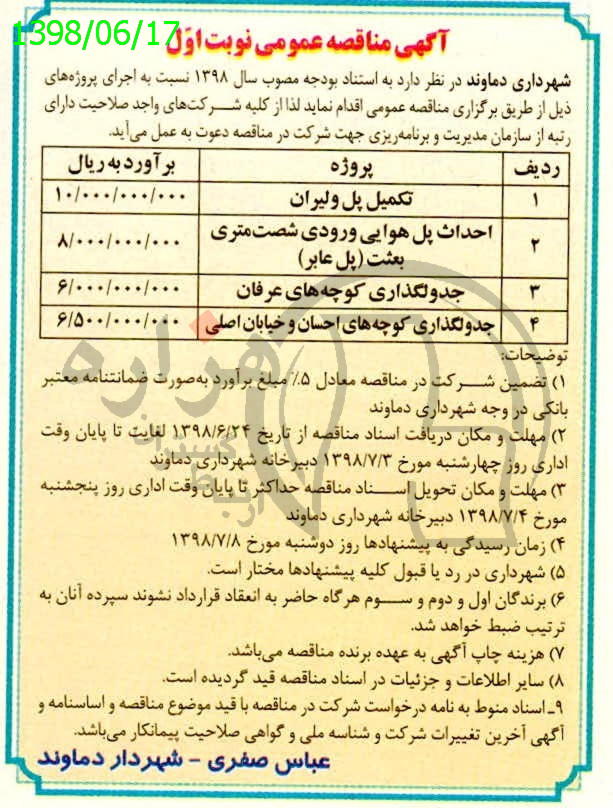 1398/06/17
آگهی مناقصه عمومی نوبت اوّل
شهرداری دماوند در نظر دارد به استناد بودجه مصوب سال ۱۳۹۸ نسبت به اجرای پروژه‌های
ذیل از طریق برگزاری مناقصه عمومی اقدام نماید لذا از کلیه شرکت‌های واجد صلاحیت دارای
رتبه از سازمان مدیریت و برنامه‌ریزی جهت شرکت در مناقصه دعوت به عمل می‌آید.
ردیف پروژه برآورد به ریال
۱ تکمیل پل ولیران ۱۰/۰۰۰/۰۰۰/۰۰۰
۲ احداث پل هوایی ورودی شصت‌متری
بعثت (پل عابر) ۸/۰۰۰/۰۰۰/۰۰۰
۳ جدولگذاری کوچه‌های عرفان ۶/۰۰۰/۰۰۰/۰۰۰
۴ جدولگذاری کوچه‌های احسان و خیابان اصلی ۶/۵۰۰/۰۰۰/۰۰۰
توضیحات:
۱) تضمین شرکت در مناقصه معادل ۵٪ مبلغ برآورد به‌صورت ضمانتنامه معتبر
بانکی در وجه شهرداری دماوند
۲) مهلت و مکان دریافت اسناد مناقصه از تاریخ ۱۳۹۸/۶/۲۴ لغایت تا پایان وقت
اداری روز چهارشنبه مورخ ۱۳۹۸/۷/۳ دبیرخانه شهرداری دماوند
۳) مهلت و مکان تحویل اسناد مناقصه حداکثر تا پایان وقت اداری روز پنجشنبه
مورخ ۱۳۹۸/۷/۴ دبیرخانه شهرداری دماوند
۴) زمان رسیدگی به پیشنهادها روز دوشنبه مورخ ۱۳۹۸/۷/۸
۵) شهرداری در رد یا قبول کلیه پیشنهادها مختار است.
۶) برندگان اول و دوم و سوم هرگاه حاضر به انعقاد قرارداد نشوند سپرده آنان به
ترتیب ضبط خواهد شد.
۷) هزینه چاپ آگهی به عهده برنده مناقصه می‌باشد.
۸) سایر اطلاعات و جزئیات در اسناد مناقصه قید گردیده است.
۹ـ اسناد منوط به نامه درخواست شرکت در مناقصه با قید موضوع مناقصه و اساسنامه و
آگهی آخرین تغییرات شرکت و شناسه ملی و گواهی صلاحیت پیمانکار می‌باشد.
عباس صفری - شهردار دماوند
هزاره